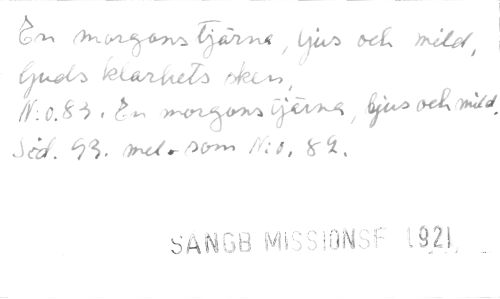 En morgonstjärna, ljus och mild,
Guds klarhets sken,
N:o. 83. En morgonstjärna, ljus och mild.
Sid. 93. mel. som N:o. 82.
SANGB MISSIONSF 1921